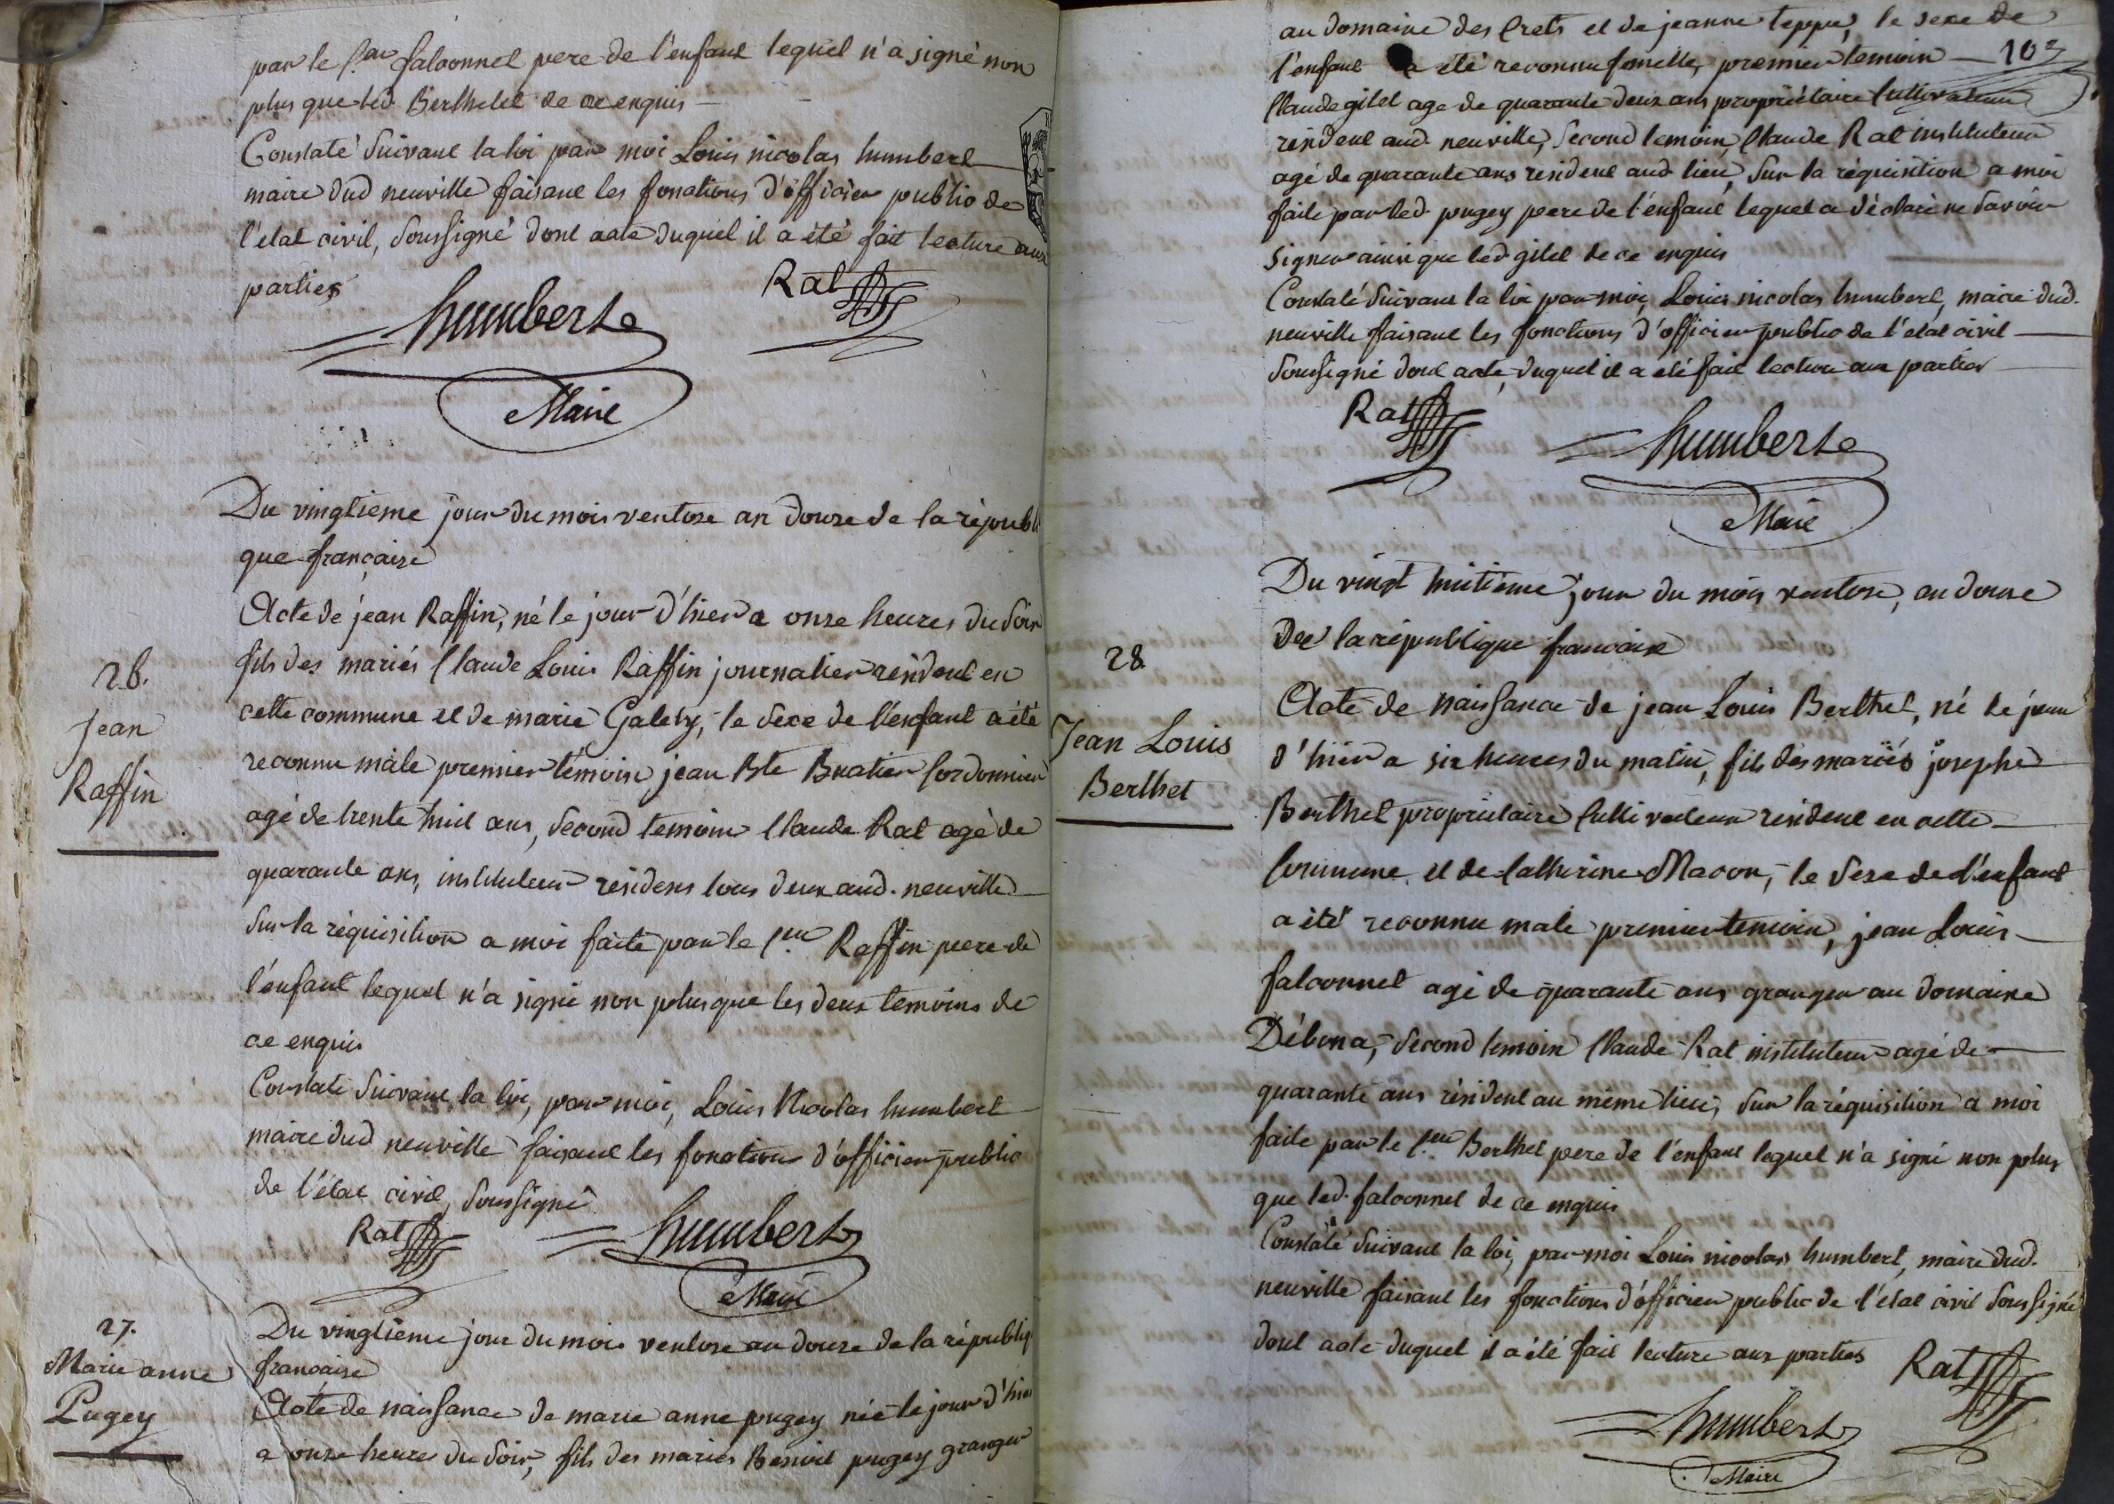 par le sieur falconnet pere de l'enfant lequel n'a signé non
plus que led. Berthelet de ce enquis
Constaté suivant la loi par moi Louis nicolas humbert
maire dud neuville faisant les fonctions d'officier public de
l'etat civil, soussigné dont acte duquel il a été fait lecture aux
parties
humbert Rat
Maire
Du vingtieme jour du mois ventose an douze de la républi
que française
26.
Jean
Raffin
Acte de jean Raffin, né le jour d'hier a onze heures du soir
fils des mariés Claude Louis Raffin journalier résident en
cette commune et de marie Galety, le sexe de l'enfant a été
reconnu mâle premier témoin jean Bte Bratier Cordonnier
agé de trente huit ans, second temoin Claude Rat agé de
quarante ans, instituteur résidens tous deux aud. neuville
sur la réquisition a moi faite par le sr. Raffin pere de
l'enfant lequel n'a signé non plus que les deux temoins de
ce enquis
Constaté suivant la loi, par moi, Louis Nicolas humbert
maire dud neuville faisant les fonctions d'officier public
de l'état civil, soussigné
Rat humbert
Maire
27.
Marie anne
Pugey
Du vingtieme jour du mois ventose an douze de la républiq
francaise
Acte de naissance de marie anne pugey née le jour d'hier
a onze heures du soir, fils des mariés Benoit pugey granger
au domaine des Crets et de jeanne teppe, le sexe de
l'enfant a été reconnu femelle, premier temoin
103
Claude gilet age de quarante deux ans propriétaire Cultivateur
résident aud. neuville, second temoin, Claude Rat instituteur
agé de quarante ans résident aud. lieu, sur la réquisition a moi
faite par led. pugey pere de l'enfant lequel a déclaré ne savoir
signer ainsi que led gilet de ce enquis
Constaté suivant la loi par moi, Louis nicolas humbert, maire dud.
neuville faisant les fonctions d'officier public de l'etat civil
soussigné dont acte, duquel il a été fait lecture aux parties
Rat humbert
Maire
Du vingt huitieme jour du mois ventose, an douze
de la république francaise
28
Jean Louis
Berthet
Acte de naissance de jean Louis Berthet, né le jour
d'hier a six heures du matin, fils des mariés joseph
Berthet propriétaire Cultivateur résident en cette
Commune et de Catherine Macon, le sexe de l'enfant
a été reconnu male premier temoin, jean Louis
falconnet agé de quarante ans granger au domaine
Débona, second temoin Claude Rat instituteur agé de
quarante ans résident au même lieu, sur la réquisition a moi
faite par le sr. Berthet pere de l'enfant lequel n'a signé non plus
que led. falconnet de ce enquis
Constaté suivant la loi, par moi Louis nicolas humbert, maire dud.
neuville faisant les fonctions d'officier public de l'état civil soussigné
dont acte duquel il a été fait lecture aux parties
Rat
humbert
Maire